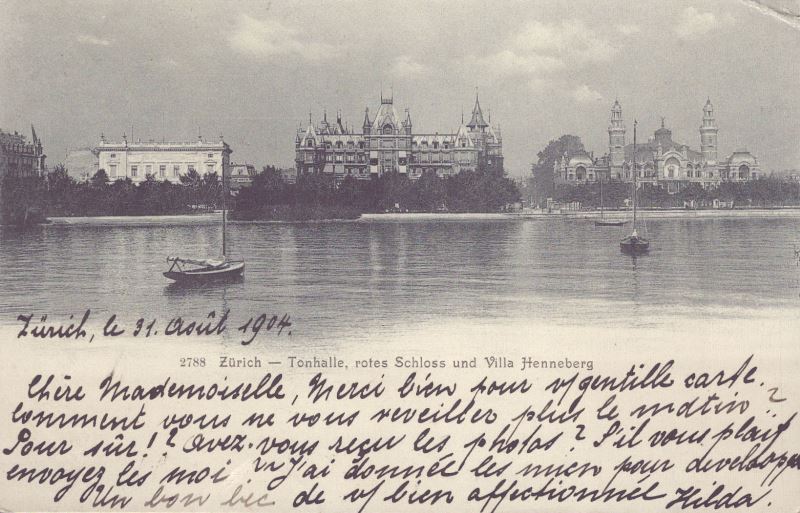 Zürich, le 31. Août 1904.
2788 Zürich — Tonhalle, rotes Schloss und Villa Henneberg
Chère Mademoiselle, Merci bien pour v/gentille carte.
Comment vous ne vous reveiller plus le mâtin?
Pour sûr!? Avez-vous reçu les photos? S'il vous plait
envoyez les moi J'ai donnée les mien pour
Un bon bec de v/ bien affectionnel Hilda.